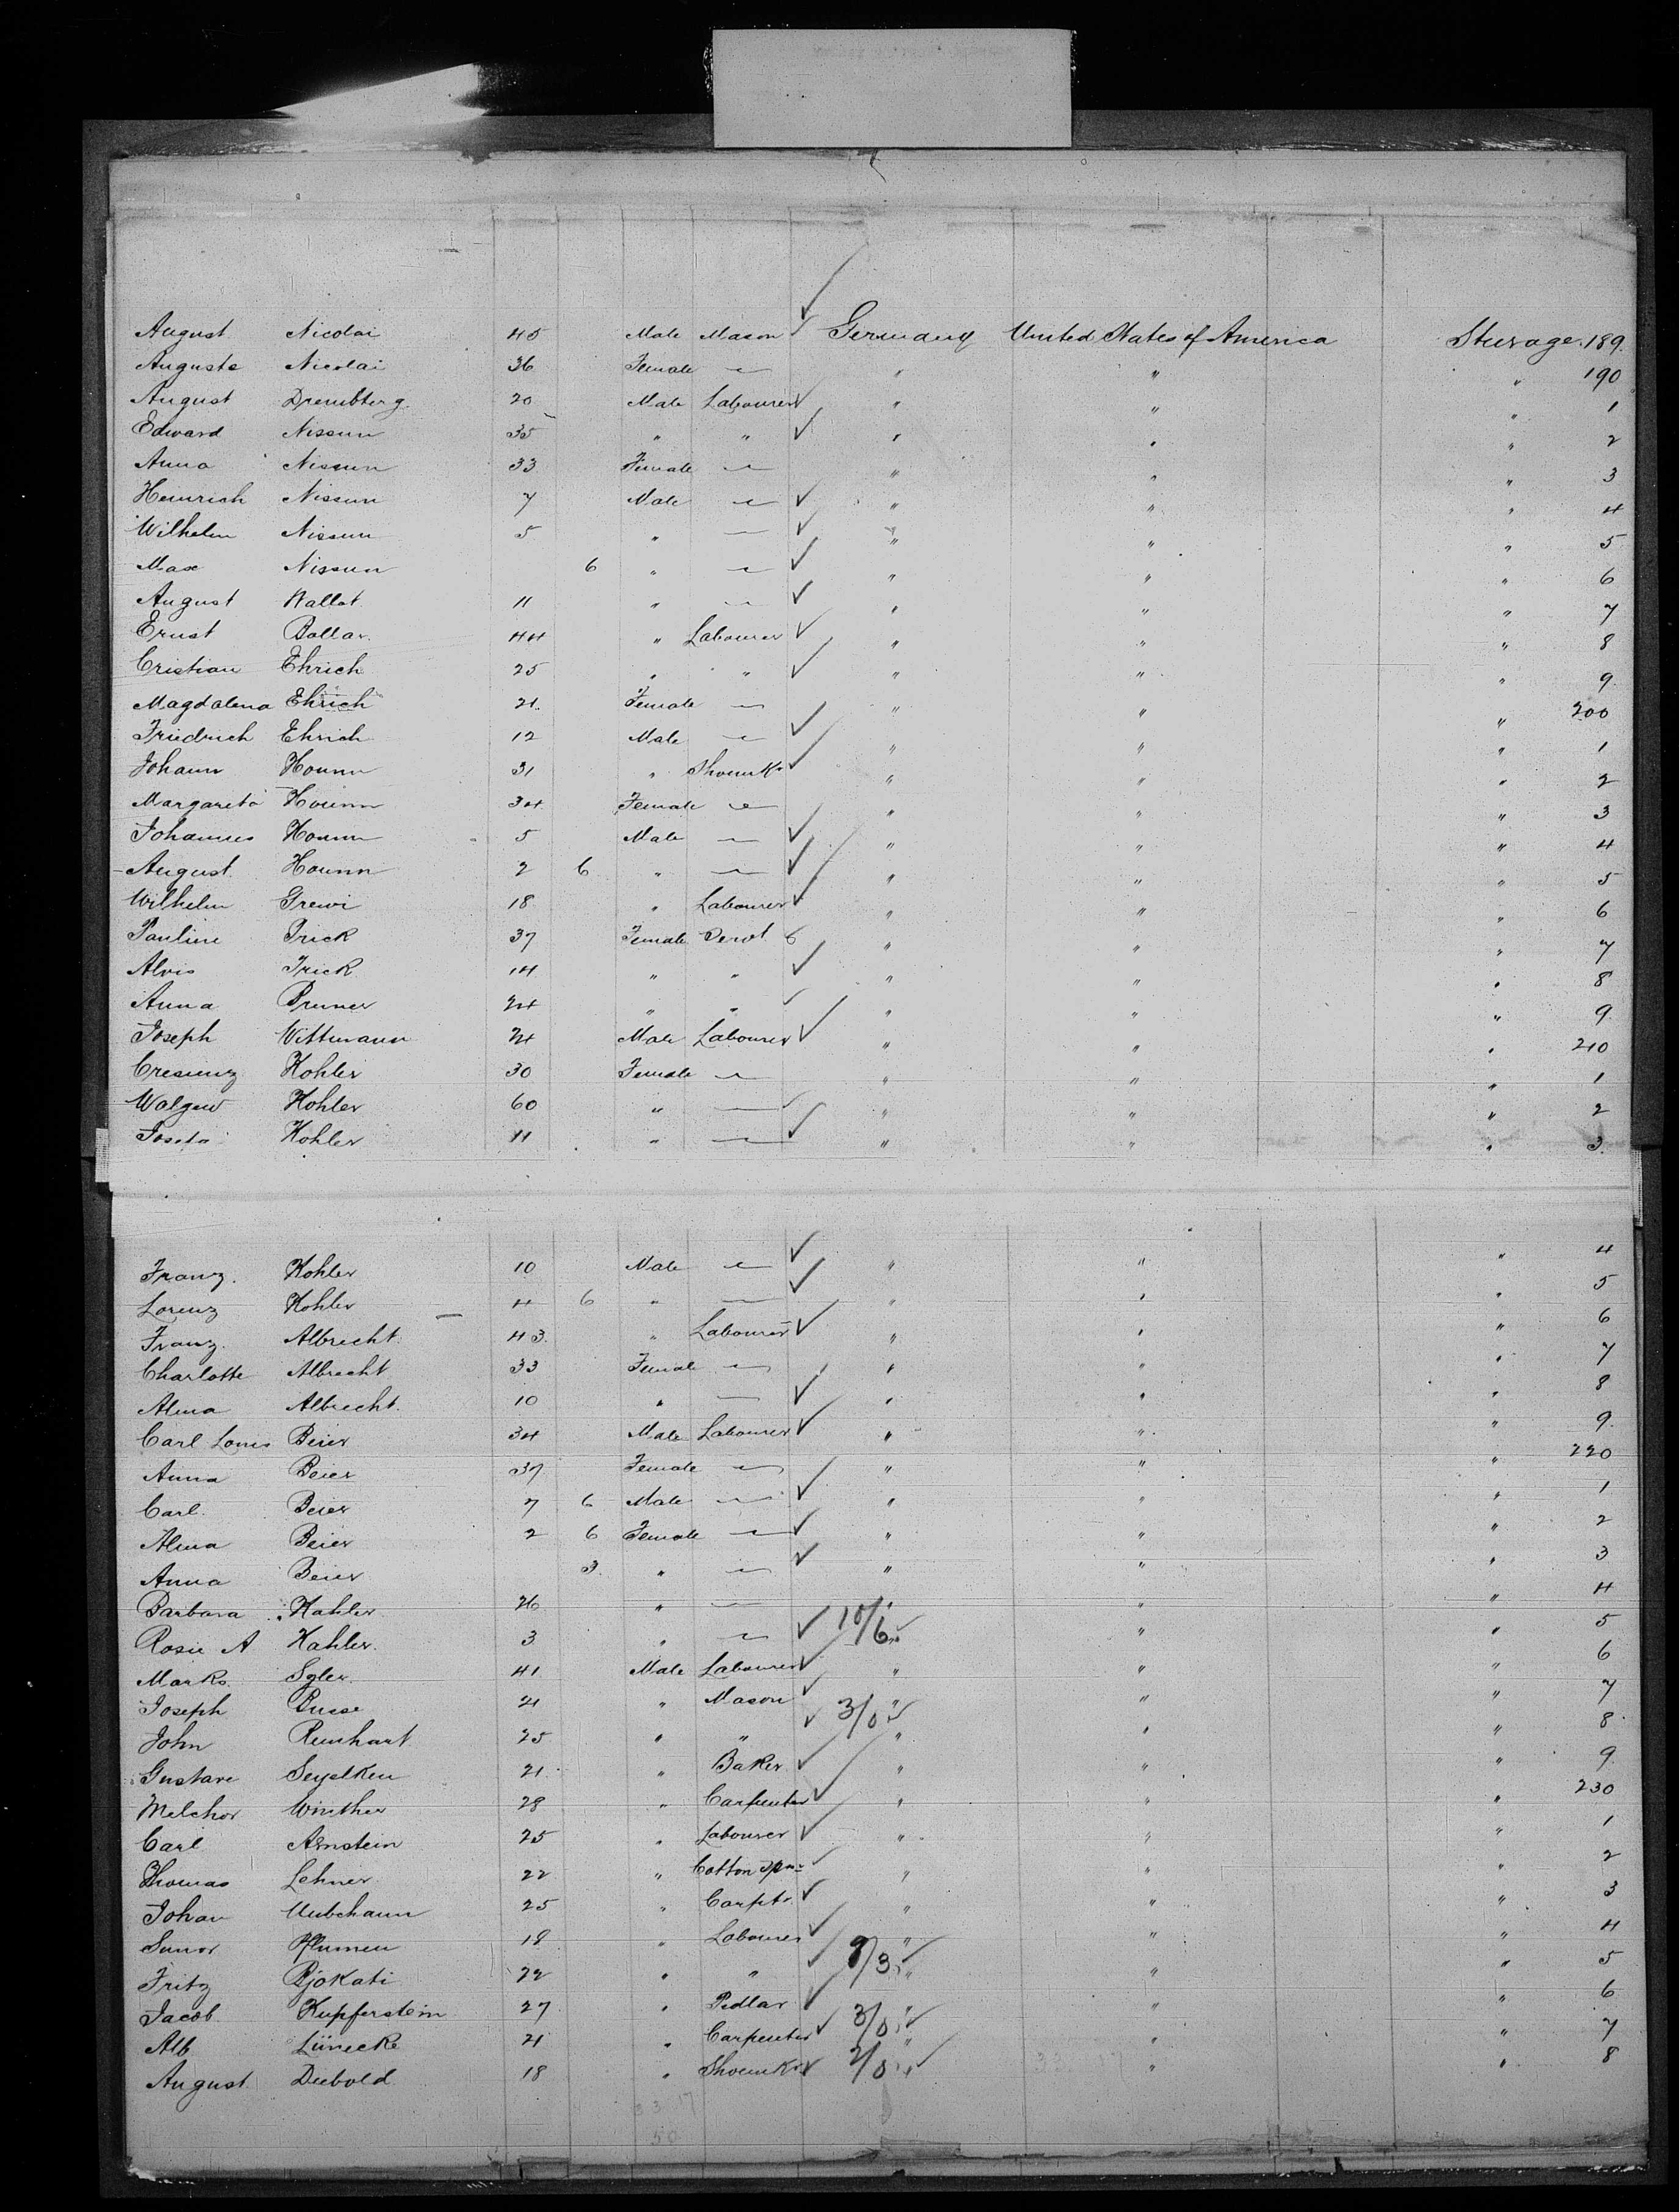 August Nicolai 45 Male Mason Germany United States of America Steerage. 189.
Auguste Nicolai 36 Female — " " " 190
August Drembterg. 20 Male Labourer " " " 1
Edward Nissun 35 " " " " " 2
Anna Nissun 33 Female — " " " 3
Heinrich Nissun 7 Male — " " " 4
Wilhelm Nissun 5 " — " " " 5
Max Nissun 6 " — " " " 6
August Wallot 11 " — " " " 7
Ernst Bollar. 44 " Labourer " " " 8
Cristian Ehrich 25 " " " " " 9.
Magdalena Ehrich 21. Female — " " " 200
Friedrich Ehrich 12 Male — " " " 1
Johann Hounn 31 " Shoemkr " " " 2
Margareta Hounn 34 Female — " " " 3
Johannes Hounn 5 Male — " " " 4
August Hounn 2 6 " — " " " 5
Wilhelm Grewi 18 " Labourer " " " 6
Pauline Trick 37 Female Servt " " " 7
Alvis Trick 14 " " " " " 8
Anna Bruner 24 " " " " " 9
Joseph Wittmann 24 Male Labourer " " " 210
Cresienz Kohler 30 Female — " " " 1
Kohler 60 " — " " " 2
Josefa Kohler 11 " — " " " 3.
Franz. Kohler 10 Male — " " " 4
Lorenz Kohler 4 6 " — " " " 5
Franz. Albrecht. 43. " Labourer " " " 6
Charlotte Albrecht 33 Female — " " " 7
Alma Albrecht. 10 " — " " " 8
Carl Louis Beier 34 Male Labourer " " " 9.
Anna Beier 37 Female — " " " 220
Carl. Beier 7 6 Male — " " " 1
Alma Beier 2 6 Female — " " " 2
Anna Beier 3. " — " " " 3
Barbara Kahler 26 " — " " " 4
Rosie A Kahler. 3 " — 10/6 " " " 5
Marks. Sgler. 41 Male Labourer " " " 6
Joseph Busse 21 " Mason " " " 7
John Reinhart 25 " " 3/0 " " " 8
Gustave Seyelken 21. " Baker. " " " 9
Melchor Winther 28 " Carpenter " " " 230
Carl Arnstein 25 " Labourer " " " 1
Thomas Lehner 22 " Cotton Spnr " " " 2
Johan Uubehaun 25 " Carptr. " " " 3
Pflumen 18 " Labourer " " " 4
Fritz Bjokati 22 " " 9/3 " " " 5
Jacob. Kupferstein 27 " Pedlar " " " 6
Alb Lünecke 21 " Carpenter 3/0 " " " 7
August Diebold 18 " Shoemkr 2/0 " " " 8
33 17
50